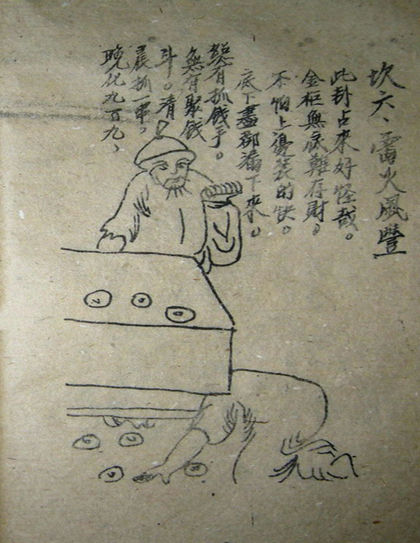 坎六、雷火風豐
此卦占來好怪哉。
金柜無底難存財。
不怕上邊裝的快。
底下盡都漏下來。
總有抓錢手。
無有聚錢
斗。清
晨抓一串。
晚化九百九、